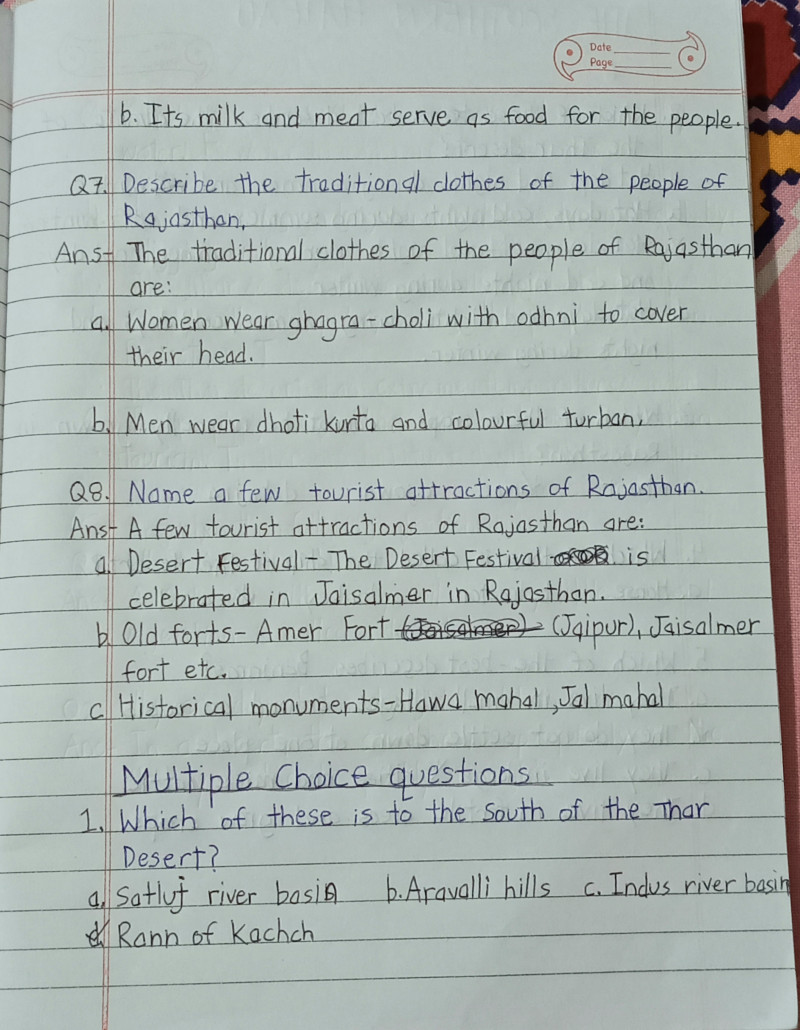 Date
Page
b. Its milk and meat serve as food for the people.
Q7. Describe the traditional clothes of the people of
Rajasthan.
Ans- The traditional clothes of the people of Rajasthan
are:
a. Women wear ghagra-choli with odhni to cover
their head.
b. Men wear dhoti kurta and colourful turban.
Q8. Name a few tourist attractions of Rajasthan.
Ans- A few tourist attractions of Rajasthan are:
a. Desert Festival - The Desert Festival is
celebrated in Jaisalmer in Rajasthan.
b. Old forts- Amer Fort (Jaisalmer) (Jaipur), Jaisalmer
fort etc.
c. Historical monuments-Hawa mahal, Jal mahal
Multiple Choice questions
1. Which of these is to the South of the Thar
Desert?
a. Satluj river basin b. Aravalli hills c. Indus river basin
d. Rann of Kachch